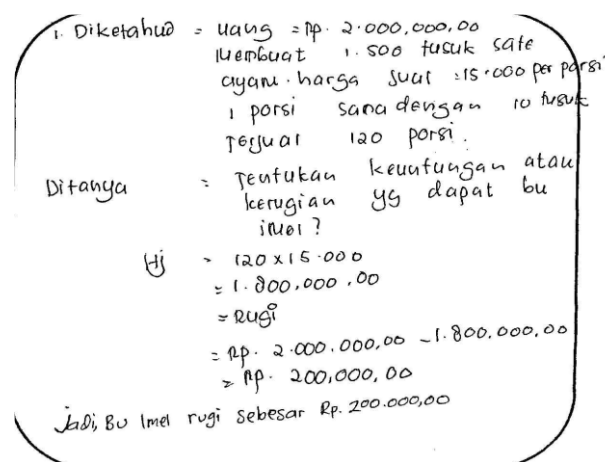 1. Diketahud = uang = Rp. 2.000,000,00
Membuat 1.500 tusuk sate
ayam. harga jual : 15.000 per porsi
1 porsi sama dengan 10 tusuk
Terjual 120 porsi.
Ditanya = Tentukan keuntungan atau
kerugian yg dapat bu
imel?
Hj = 120 x 15.000
= 1.800,000,00
= Rugi
= Rp. 2.000.000,00 - 1.800.000,00
= Rp. 200,000,00
Jadi, Bu Imel rugi sebesar Rp. 200.000,00